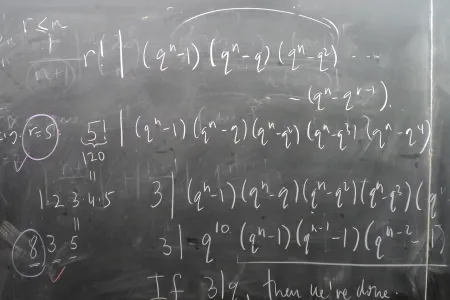 r ≤ n
r! | (qⁿ-1)(qⁿ-q)(qⁿ-q²) ...
-(qⁿ-qʳ⁻¹).
r=5 5! | (qⁿ-1)(qⁿ-q)(qⁿ-q²)(qⁿ-q³)(qⁿ-q⁴)
120
"
1·2·3·4·5 3 | (qⁿ-1)(qⁿ-q)(qⁿ-q²)(qⁿ-q³)(
"
8 3 5 3 | q¹⁰ (qⁿ-1)(qⁿ⁻¹-1)(qⁿ⁻²-1)
If 3|q, then we're done.